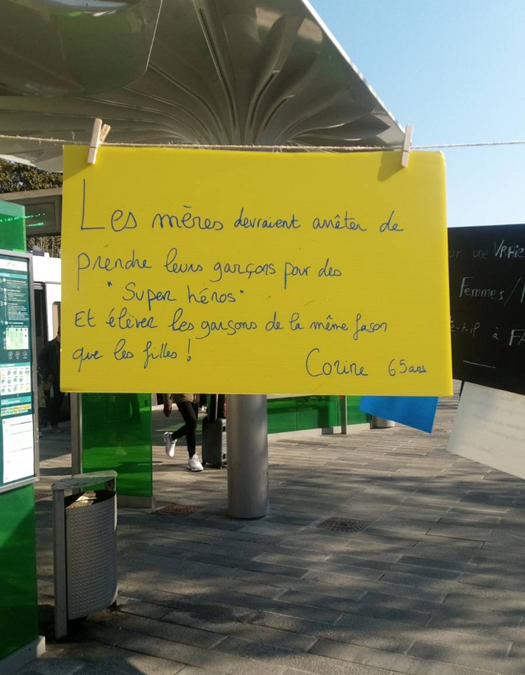 Les mères devraient arrêter de
prendre leurs garçons pour des
"Super héros"
Et élever les garçons de la même fason
que les filles !
Corine 65 ans
une
Femmes /
à